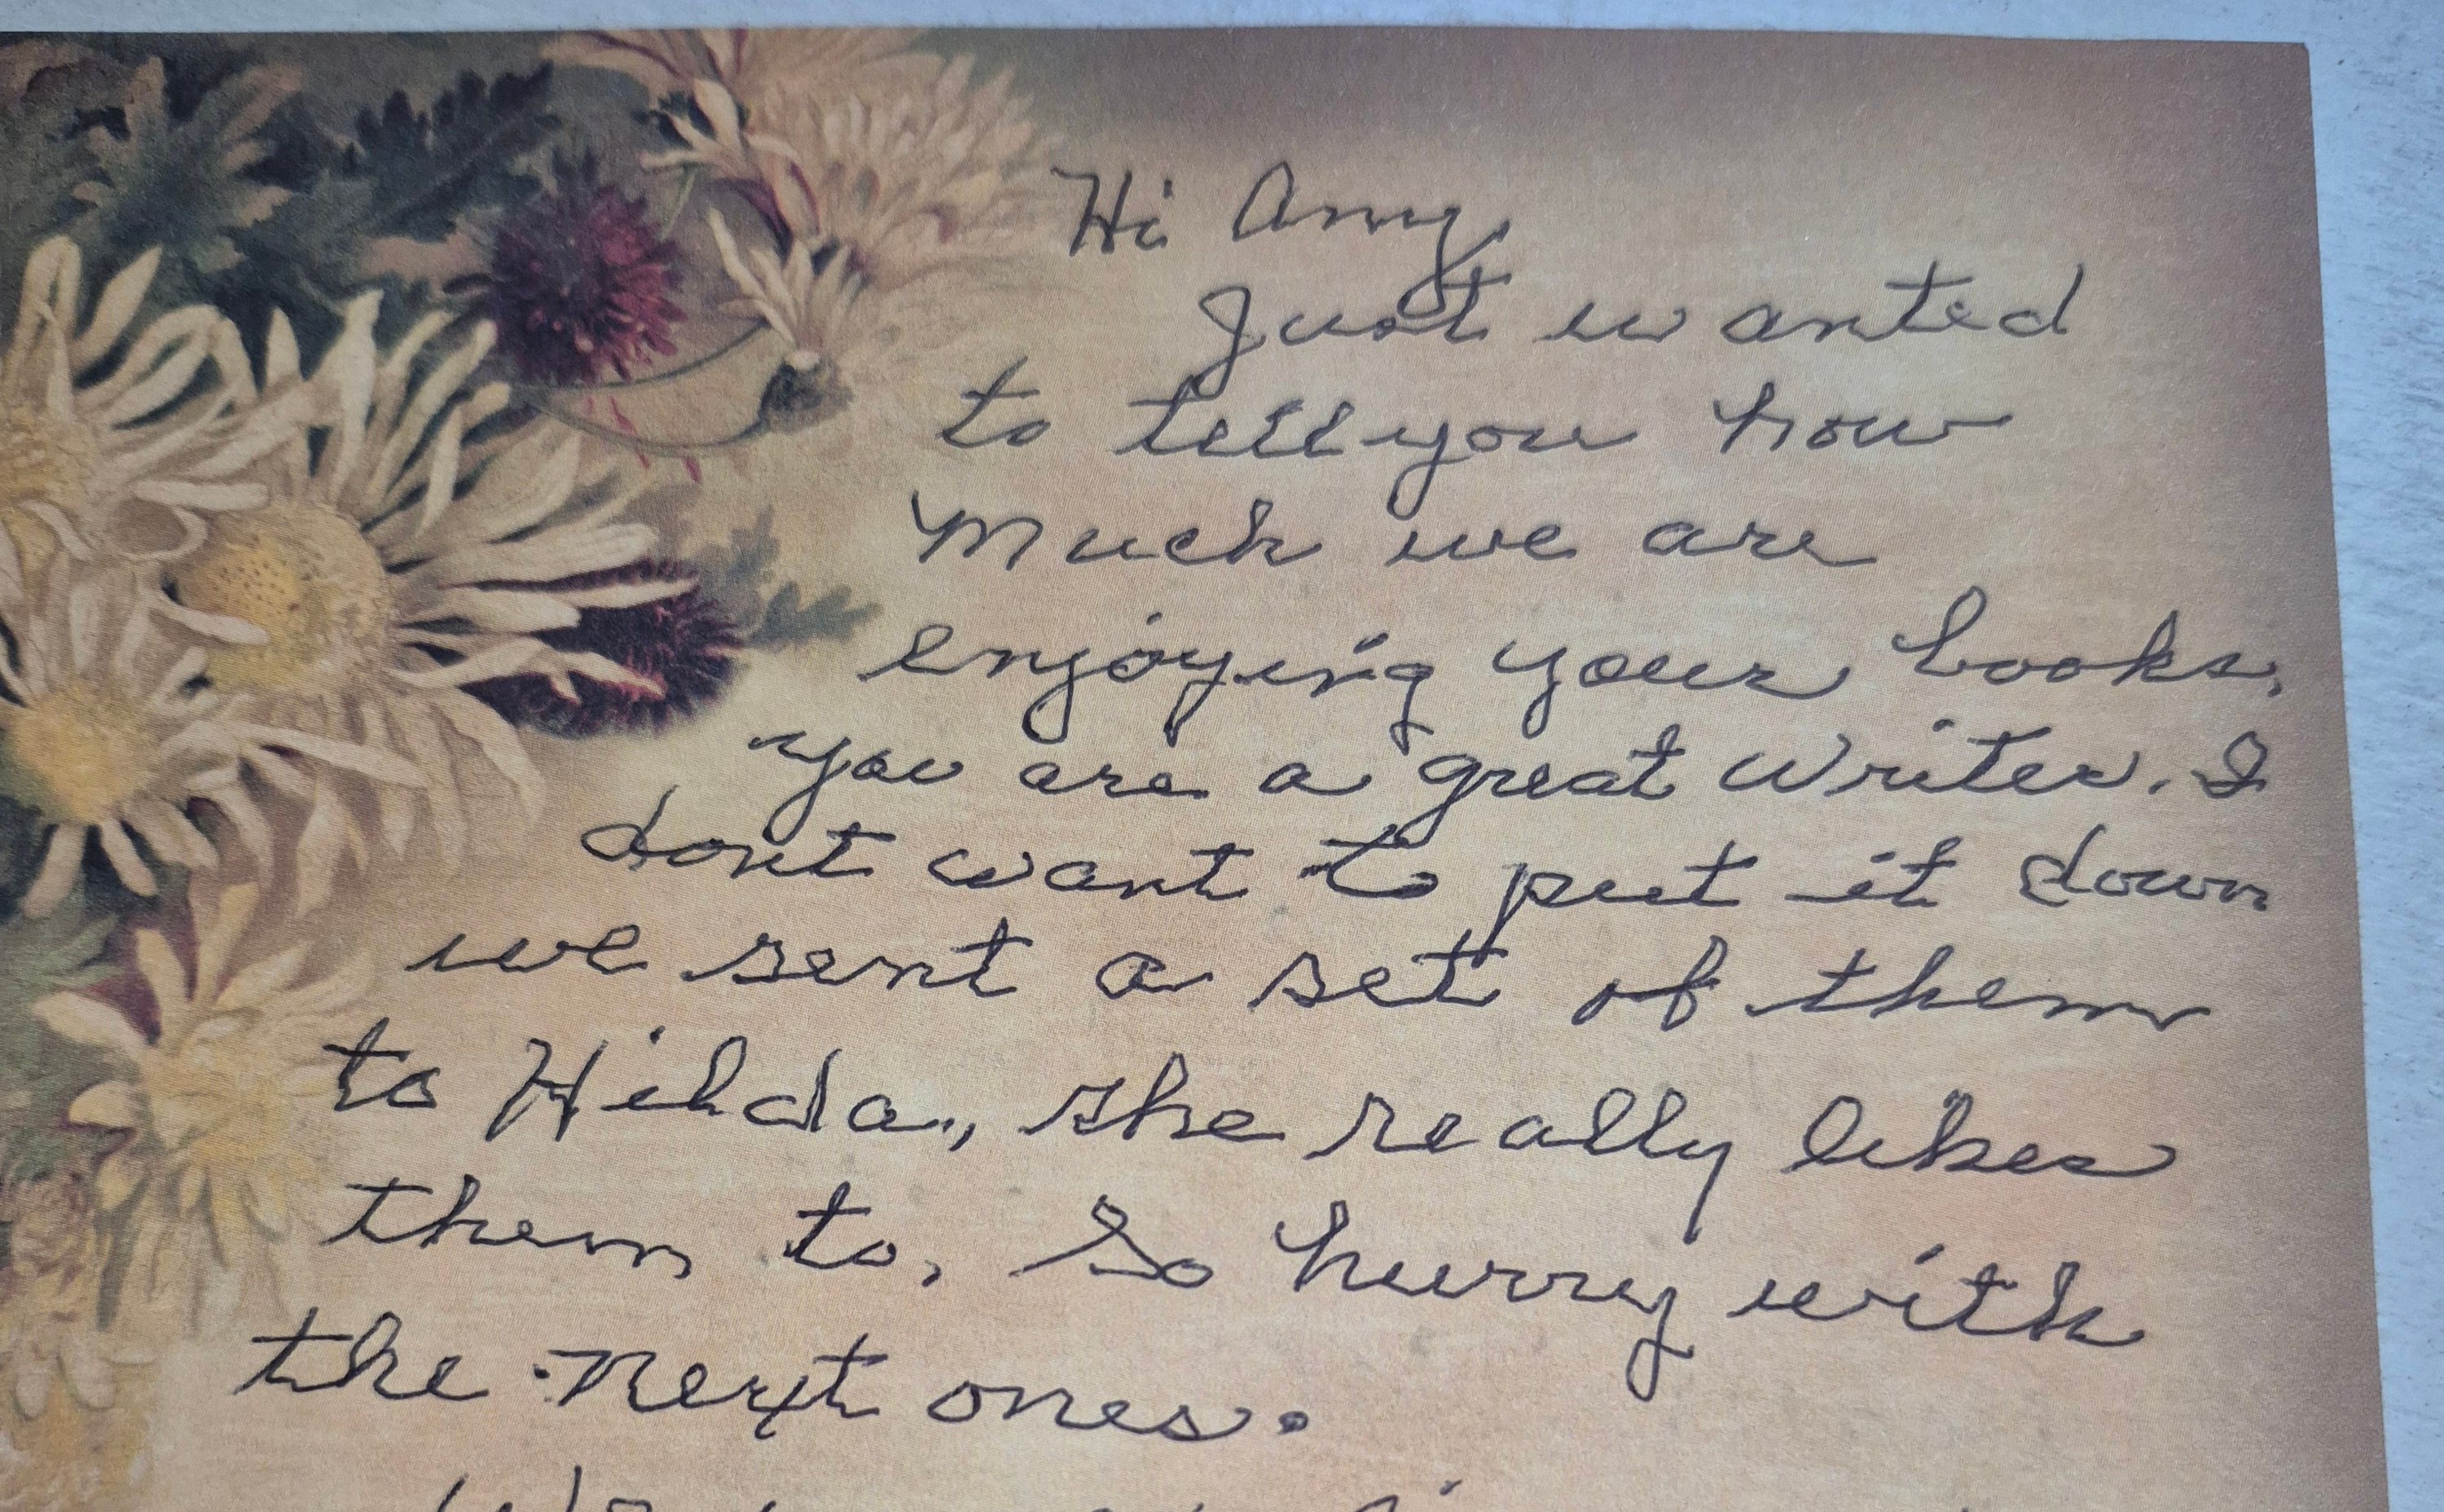 Hi Amy,
Just wanted
to tell you how
much we are
enjoying your books,
you are a great writer. I
dont want to put it down
we sent a set of them
to Hilda., she really likes
them to, So hurry with
the next ones.